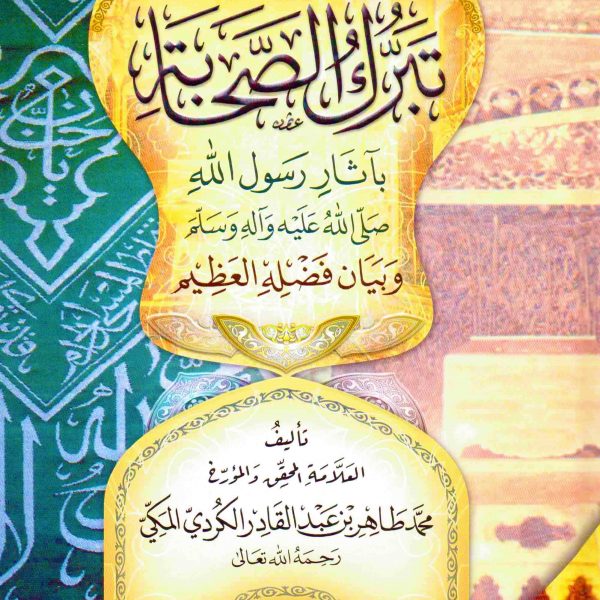 تَبَرُّكُ الصَّحَابَةِ
بِآثَارِ رَسُولِ اللهِ
صَلَّى اللهُ عَلَيْهِ وَآلِهِ وَسَلَّمَ
وَبَيَان فَضْلِهِ العَظِيم
تأليفُ
العَلَّامَة المحقّق وَالمؤرّخ
محمّد طَاهِر بْن عَبْد القَادِر الكُرديّ المَكيّ
رَحِمَهُ الله تعَالى